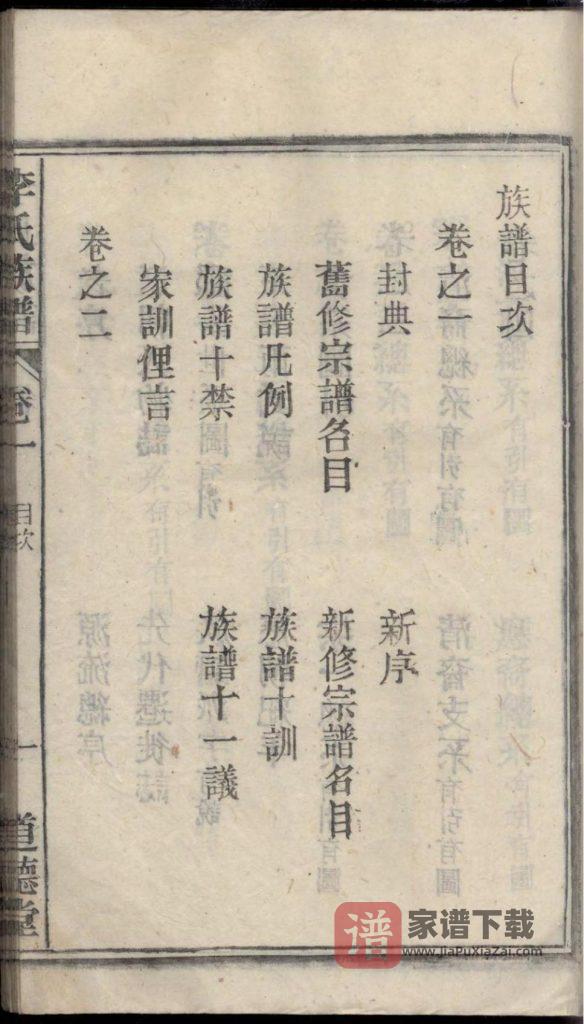 族譜目次
卷之一
封典
新序
舊修宗譜名目
新修宗譜名目
族譜凡例
族譜十訓
族譜十禁
族譜十一議
家訓俚言
卷之二
李氏族譜
卷一
目次
一
道德堂
谱
家谱下载
www.JiaPuXiaZai.com